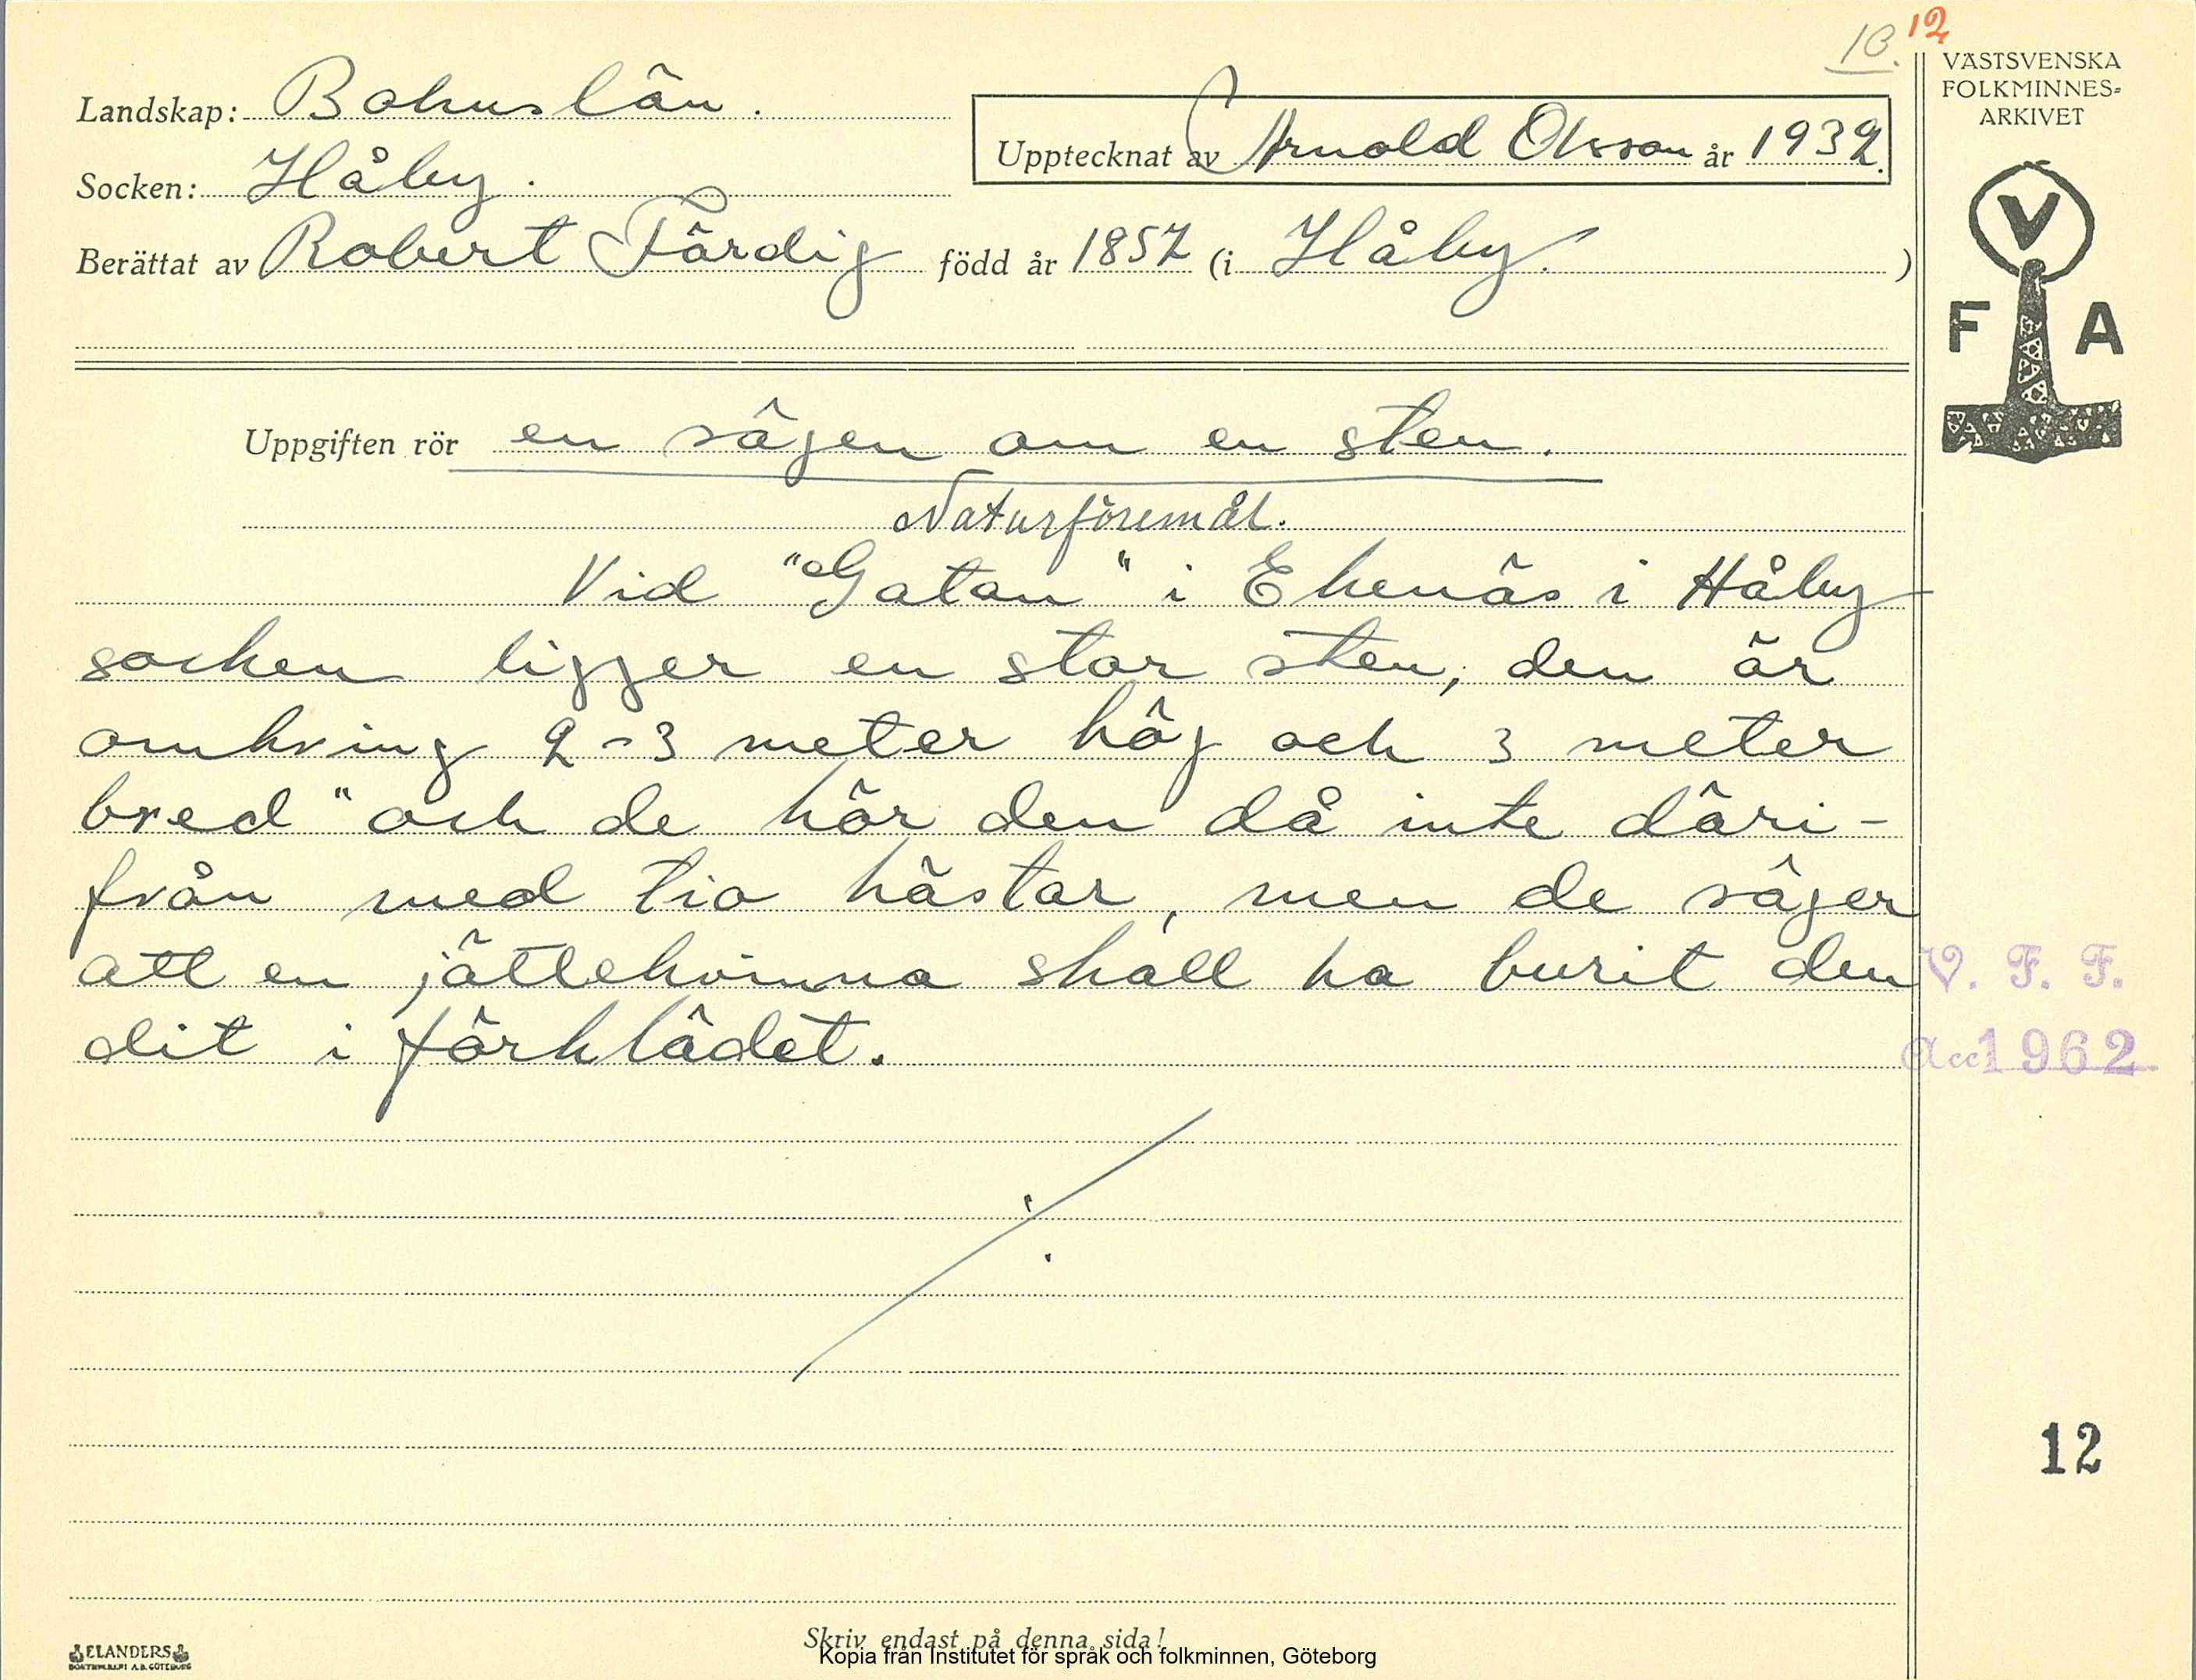 10. 12
VÄSTSVENSKA
FOLKMINNES=
ARKIVET
Landskap: Bohuslän.
Upptecknat av Arnold Olsson år 1932.
Socken: Håby.
Berättat av Robert Färdig född år 1857 (i Håby. )
V
F A
Uppgiften rör en sägen om en sten.
Naturföremål.
Vid "Gatan" i Ekenäs i Håby
socken ligger en stor sten, den är
omkring 2-3 meter hög och 3 meter
bred "och de kör den då inte däri-
från med tio hästar, men de säger
att en jättekvinna skall ha burit den
dit i förklädet.
V. F. F.
Acc 1962
12
Skriv endast på denna sida!
Kopia från Institutet för språk och folkminnen, Göteborg
ELANDERS
BOKTRYCKERI A.B. GÖTEBORG